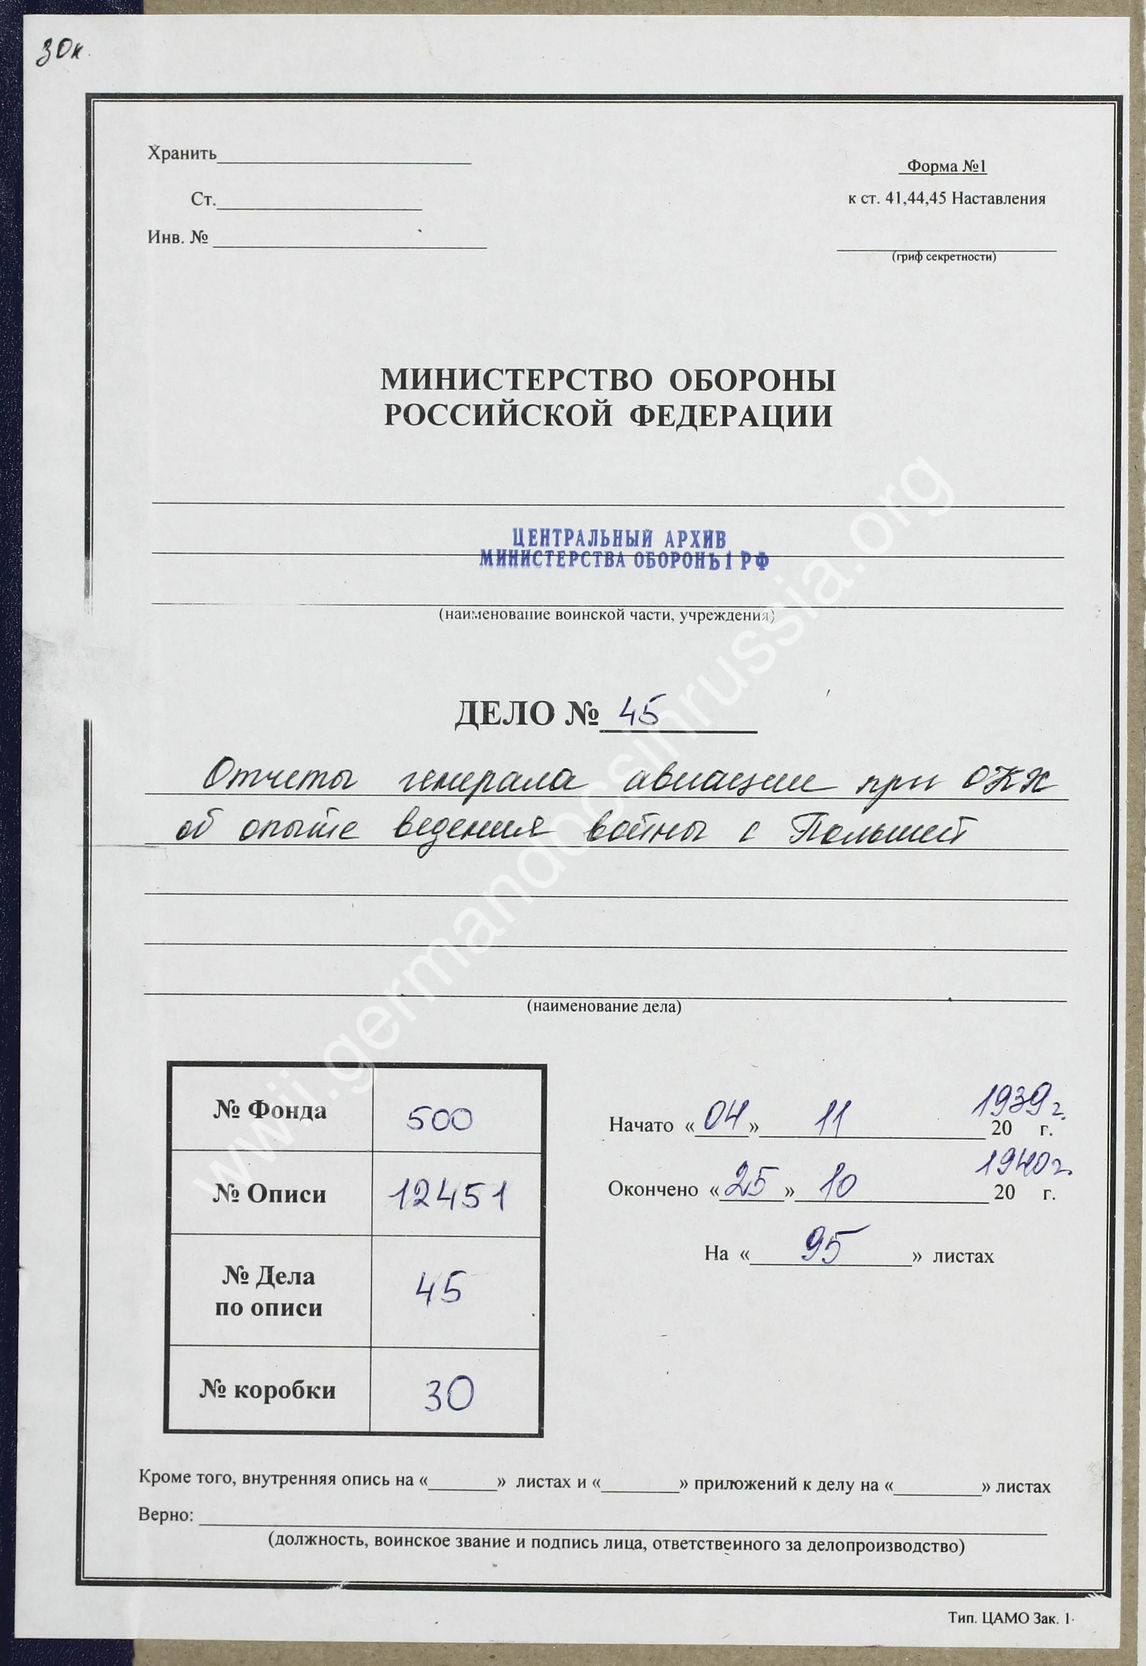 30к.
Хранить
Форма №1
Ст.
к ст. 41,44,45 Наставления
Инв. №
(гриф секретности)
МИНИСТЕРСТВО ОБОРОНЫ
РОССИЙСКОЙ ФЕДЕРАЦИИ
ЦЕНТРАЛЬНЫЙ АРХИВ
МИНИСТЕРСТВА ОБОРОНЫ РФ
(наименование воинской части, учреждения)
ДЕЛО № 45
Отчеты генерала авиации при ОКХ
об опыте ведения войны с Польшей
(наименование дела)
№ Фонда 500
№ Описи 12451
№ Дела
по описи 45
№ коробки 30
1939г.
Начато «04» 11 20 г.
1940г.
Окончено «25» 10 20 г.
На « 95 » листах
Кроме того, внутренняя опись на « » листах и « » приложений к делу на « » листах
Верно:
(должность, воинское звание и подпись лица, ответственного за делопроизводство)
Тип. ЦАМО Зак. 1
www.germandocsinrussia.org